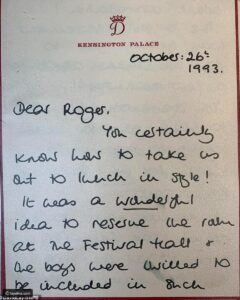 D
KENSINGTON PALACE
October: 26th
1993.
Dear Roger,
You certainly
know how to take us
out to lunch in style!
It was a wonderful
idea to reserve the room
at The Festival Hall +
the boys were thrilled to
be included in such